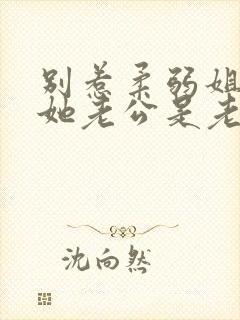 别惹柔弱姐
她老公是老
沈向然